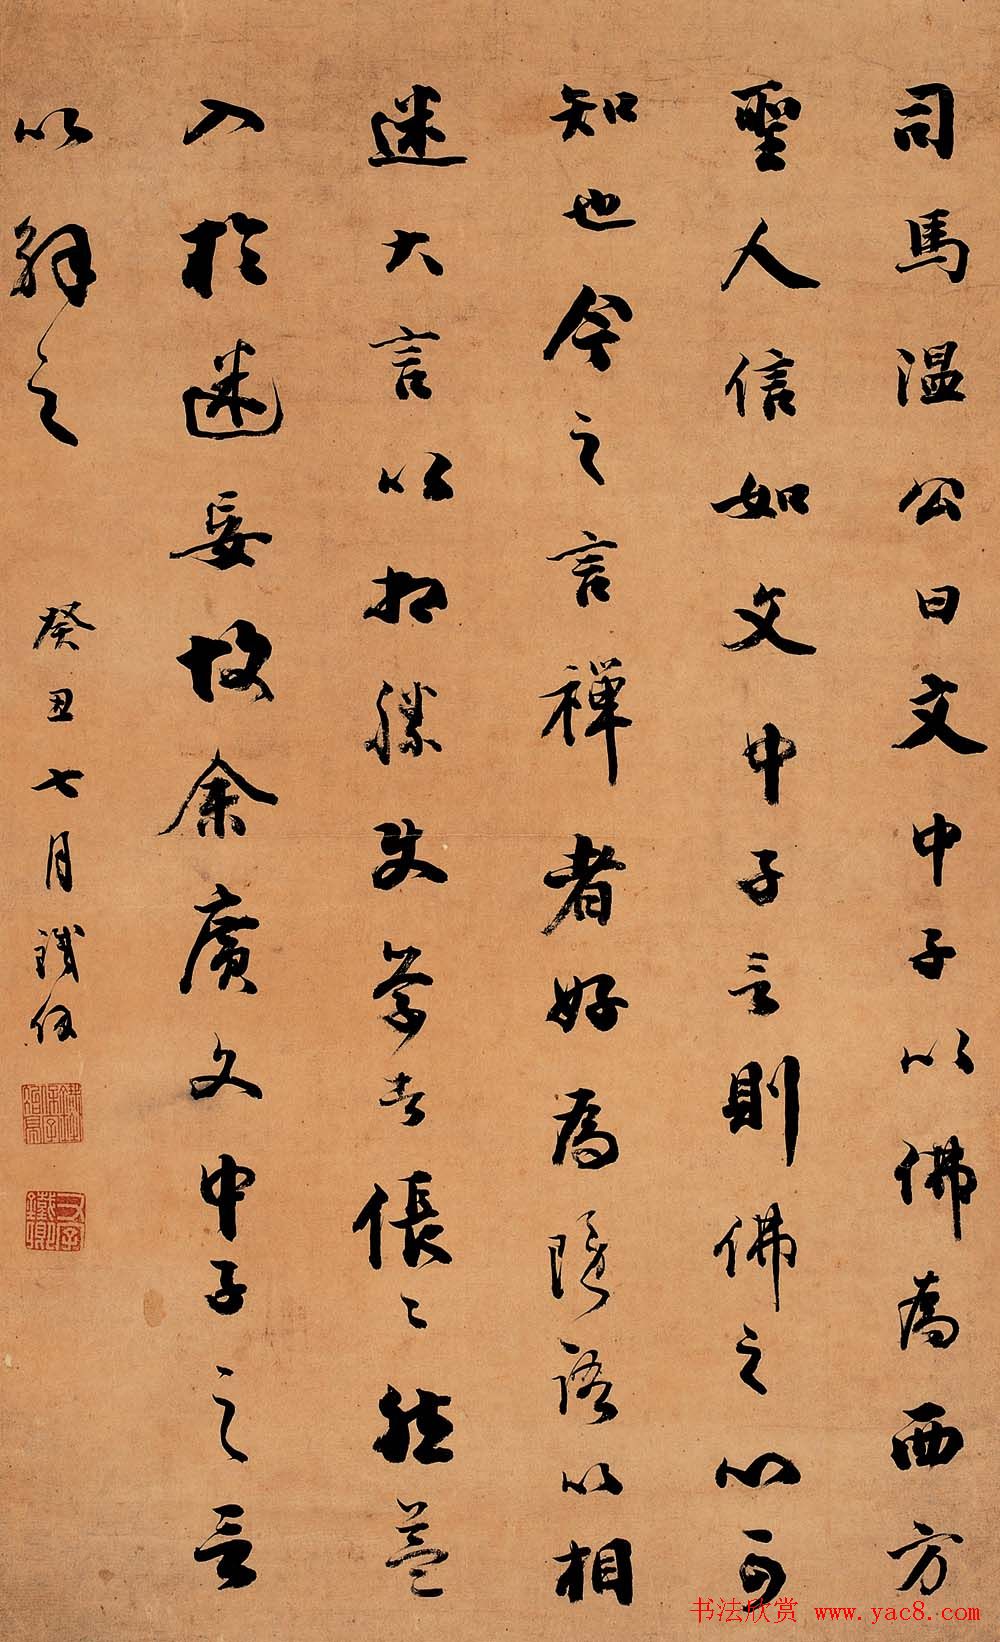 司馬温公曰文中子以佛為西方
聖人信如文中子言則佛之心可
知也今之言禪者好為隱語以相
迷大言以相勝使学者倀〻然益
入於迷妄故余廣文中子之言
以解之
癸丑七月鐵保
书法欣赏 www.yac8.com